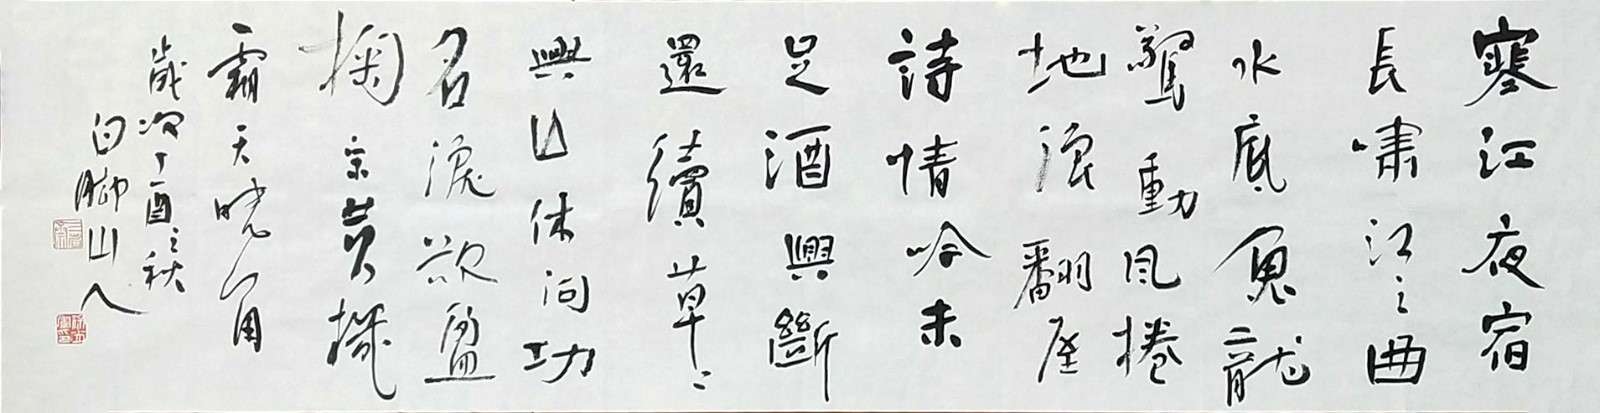 寒江夜宿
長嘯江之曲
水底魚龍
驚動風捲
地浪翻屋
詩情吟未
足酒興斷
還續草〻
興亡休問功
名淚欲盈
掬宋黃機
霜天曉角
歲次丁酉之秋
山人